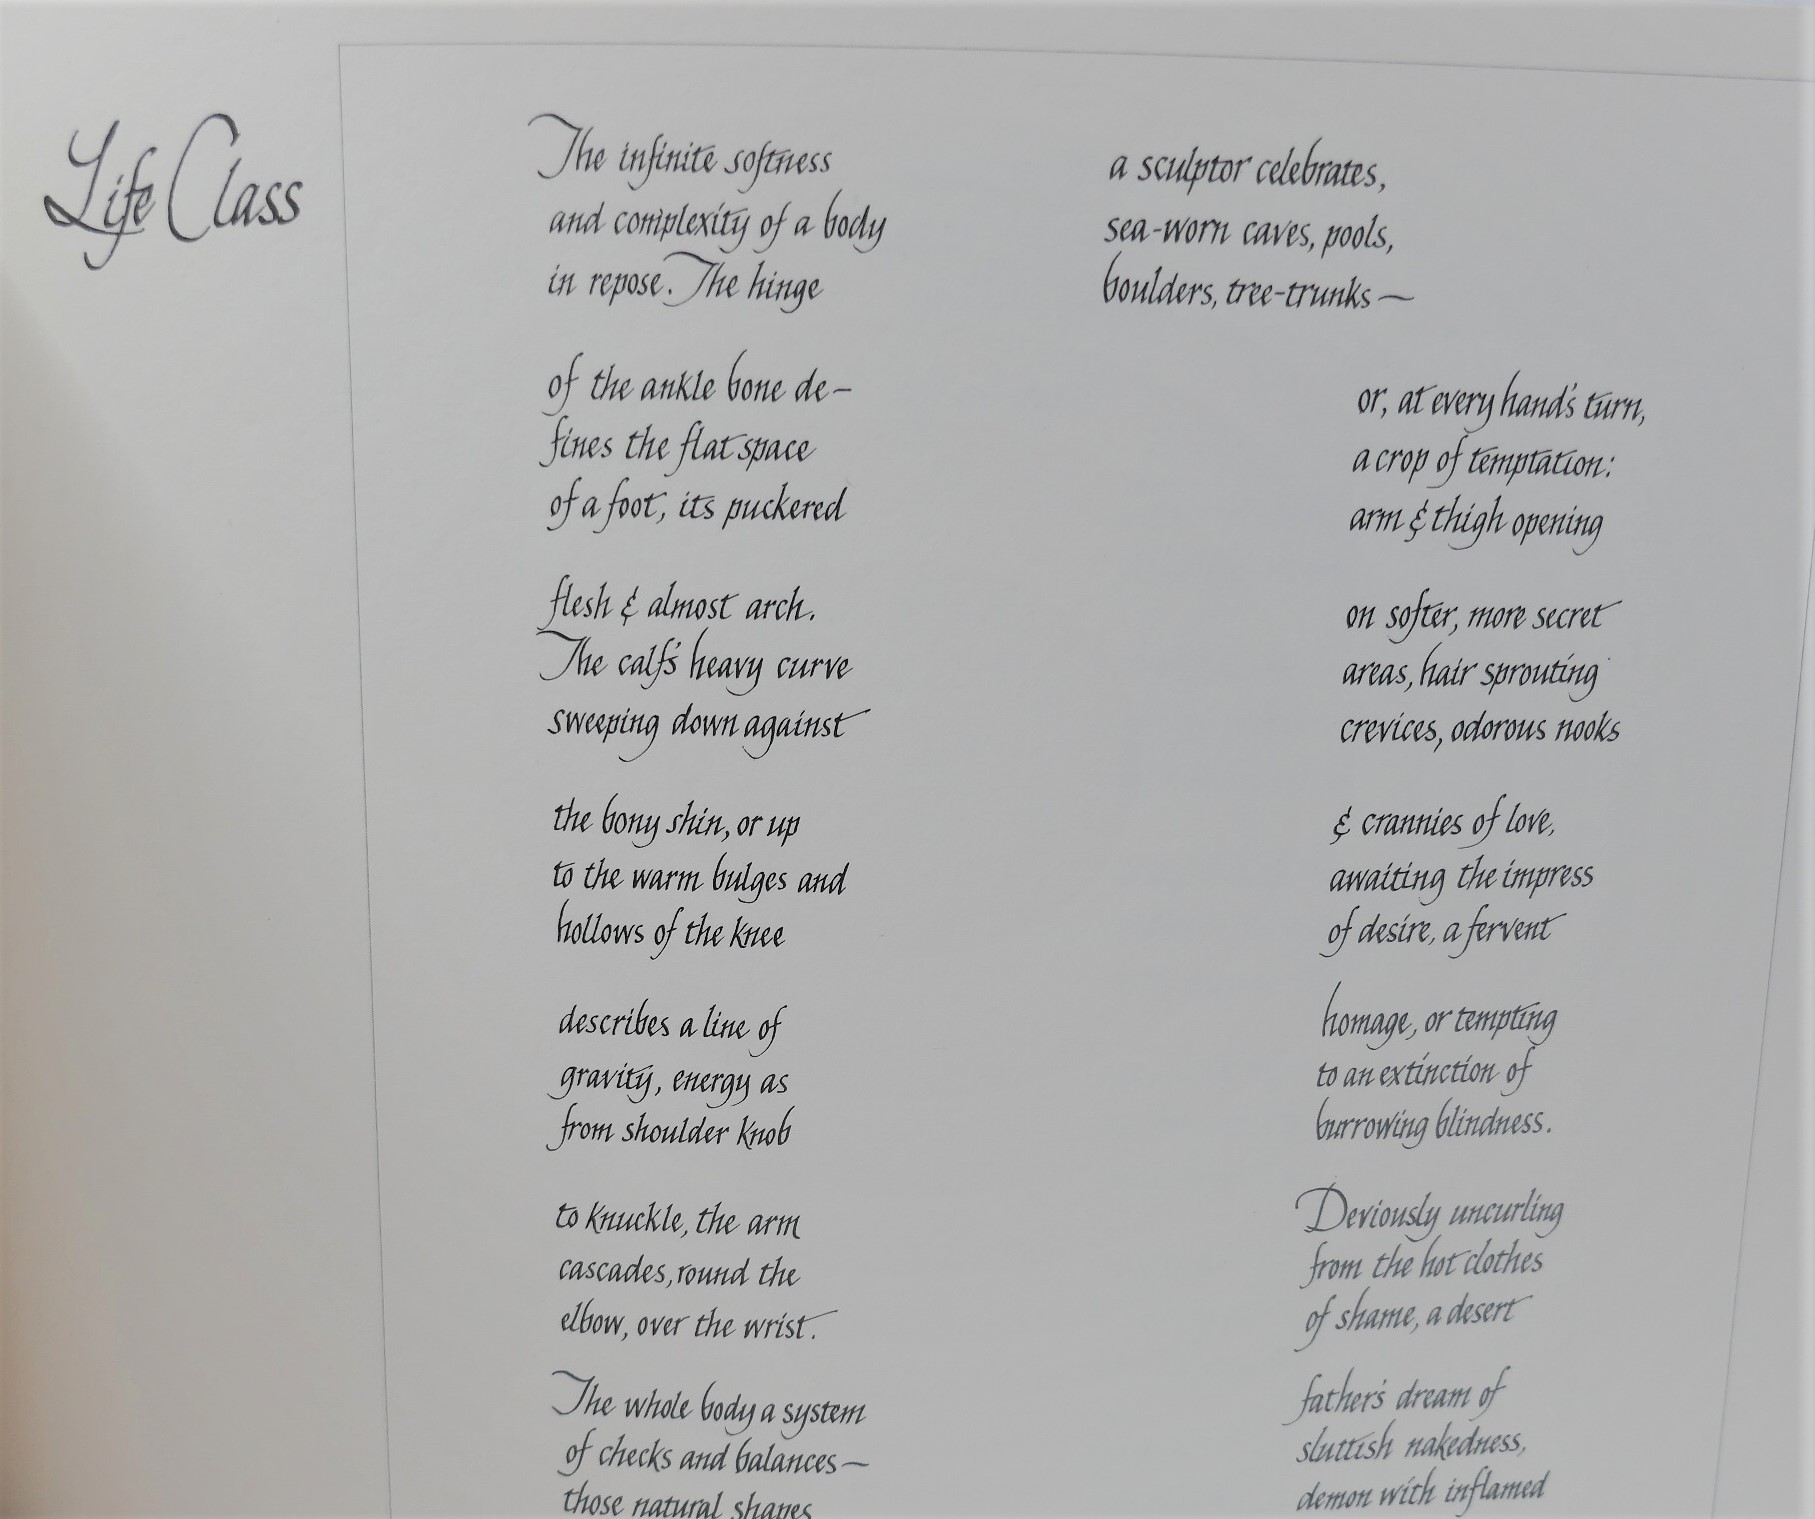 Life Class
The infinite softness
and complexity of a body
in repose. The hinge
of the ankle bone de-
fines the flat space
of a foot, its puckered
flesh & almost arch.
The calf's heavy curve
sweeping down against
the bony shin, or up
to the warm bulges and
hollows of the knee
describes a line of
gravity, energy as
from shoulder knob
to knuckle, the arm
cascades, round the
elbow, over the wrist.
The whole body a system
of checks and balances—
those natural shapes
a sculptor celebrates,
sea-worn caves, pools,
boulders, tree-trunks—
or, at every hand's turn,
a crop of temptation:
arm & thigh opening
on softer, more secret
areas, hair sprouting
crevices, odorous nooks
& crannies of love,
awaiting the impress
of desire, a fervent
homage, or tempting
to an extinction of
burrowing blindness.
Deviously uncurling
from the hot clothes
of shame, a desert
father's dream of
sluttish nakedness,
demon with inflamed